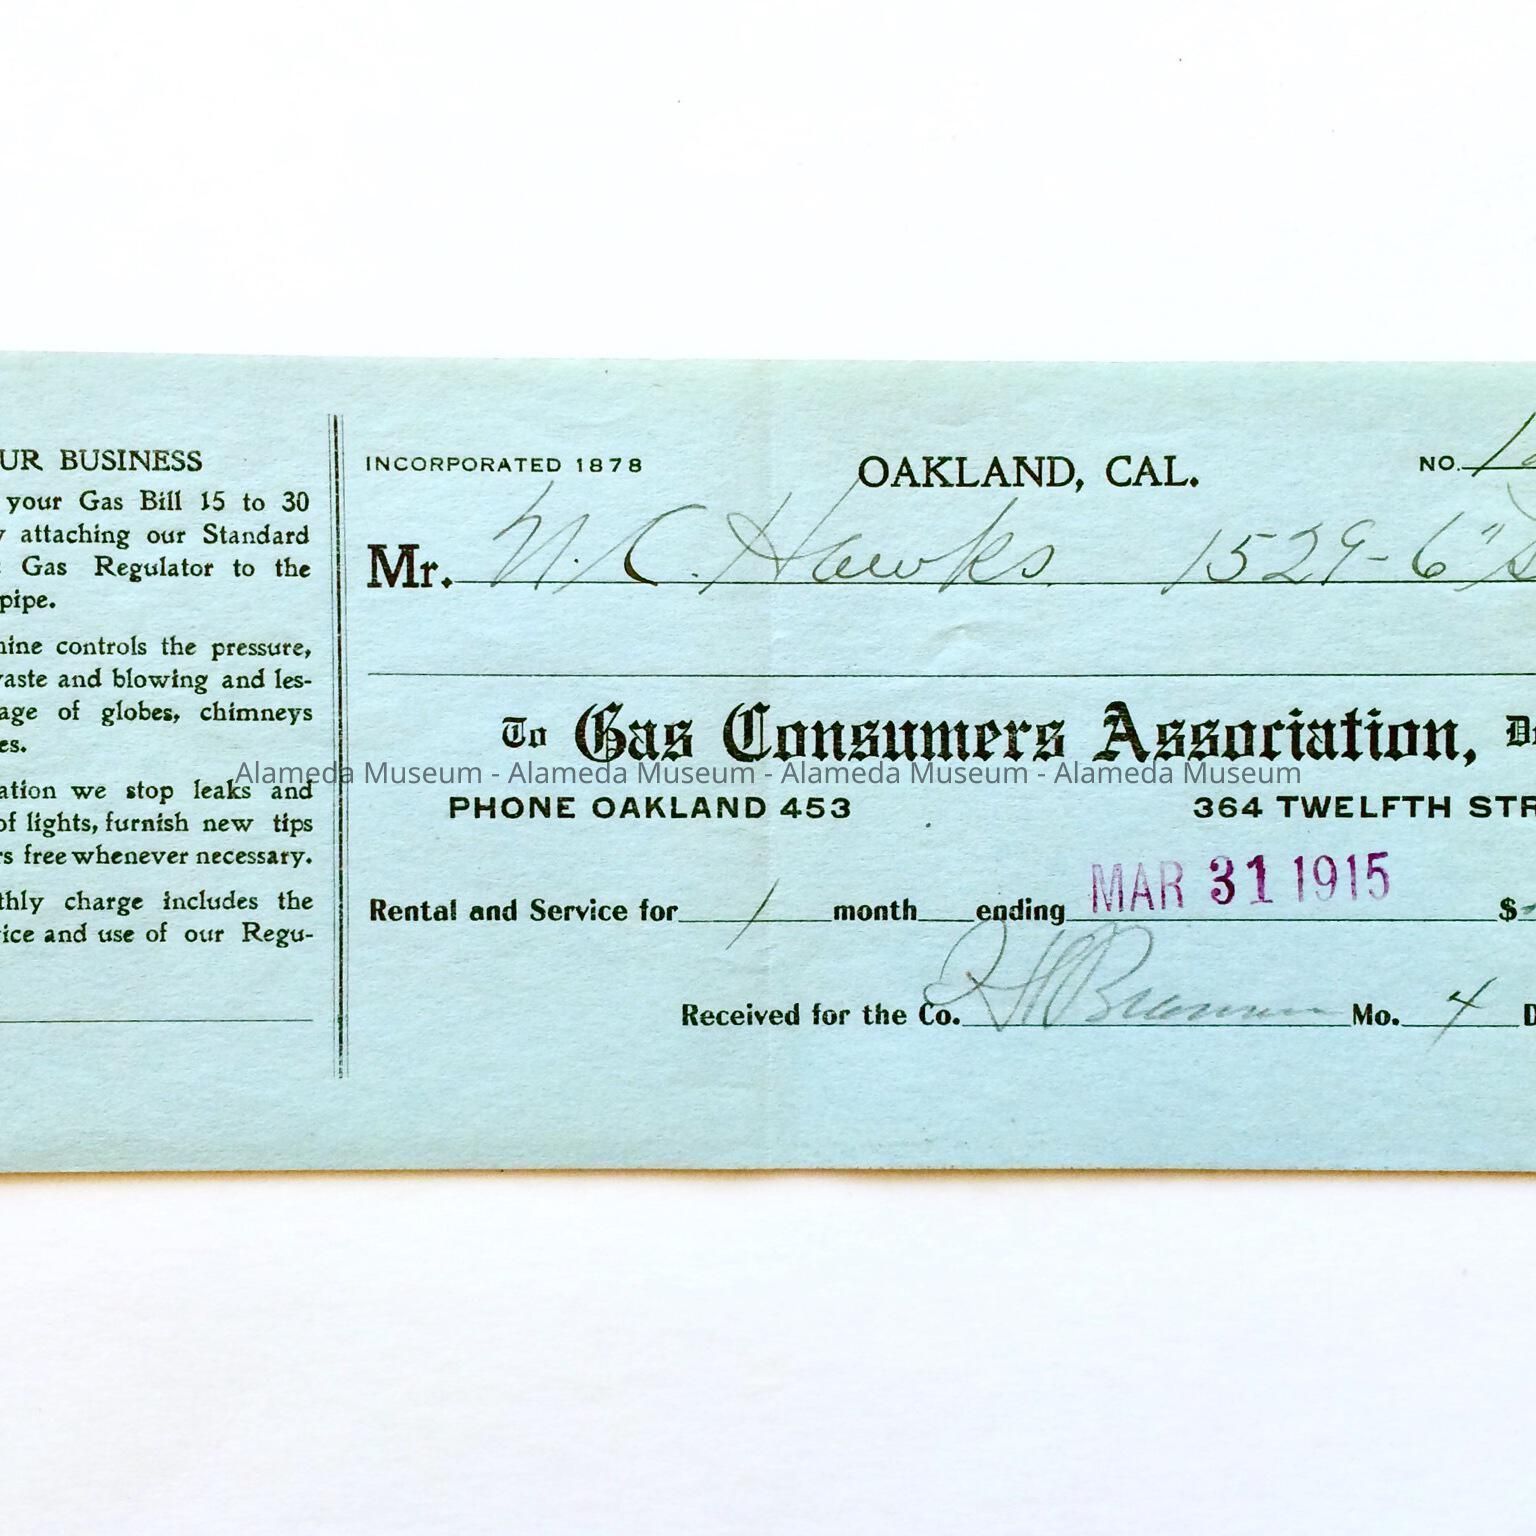 UR BUSINESS
your Gas Bill 15 to 30
attaching our Standard
Gas Regulator to the
pipe.
controls the pressure,
and blowing and les-
of globes, chimneys
we stop leaks and
of lights, furnish new tips
free whenever necessary.
charge includes the
and use of our Regu-
INCORPORATED 1878
OAKLAND, CAL.
NO.
Mr. N. C. Hawks 1529-6"
To Gas Consumers Association,
Alameda Museum - Alameda Museum - Alameda Museum - Alameda Museum
PHONE OAKLAND 453 364 TWELFTH
Rental and Service for 1 month ending MAR 31 1915 $
Received for the Co. Mo. 4